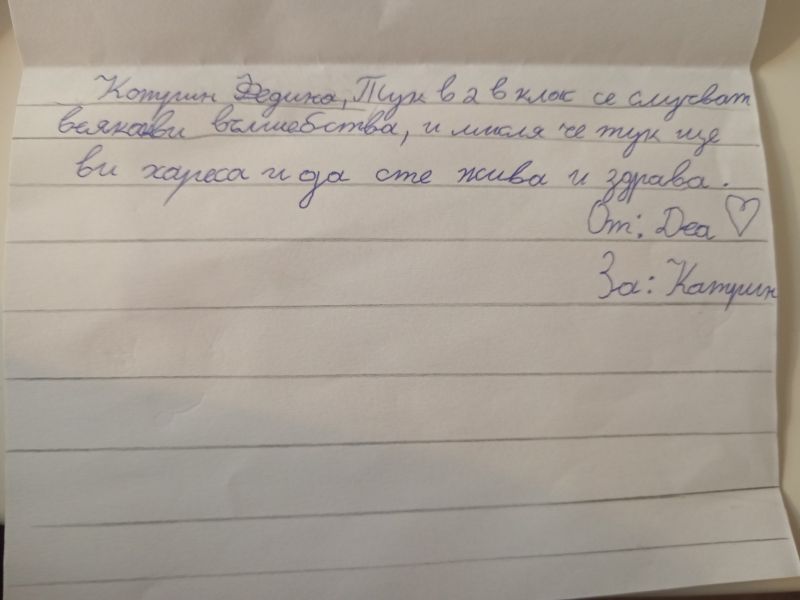 Катрин Федина, Тук в 2 в клас се случват
всякакви вълшебства, и мисля че тук ще
ви хареса и да сте жива и здрава.
От: Деа ♡
За: Катрин